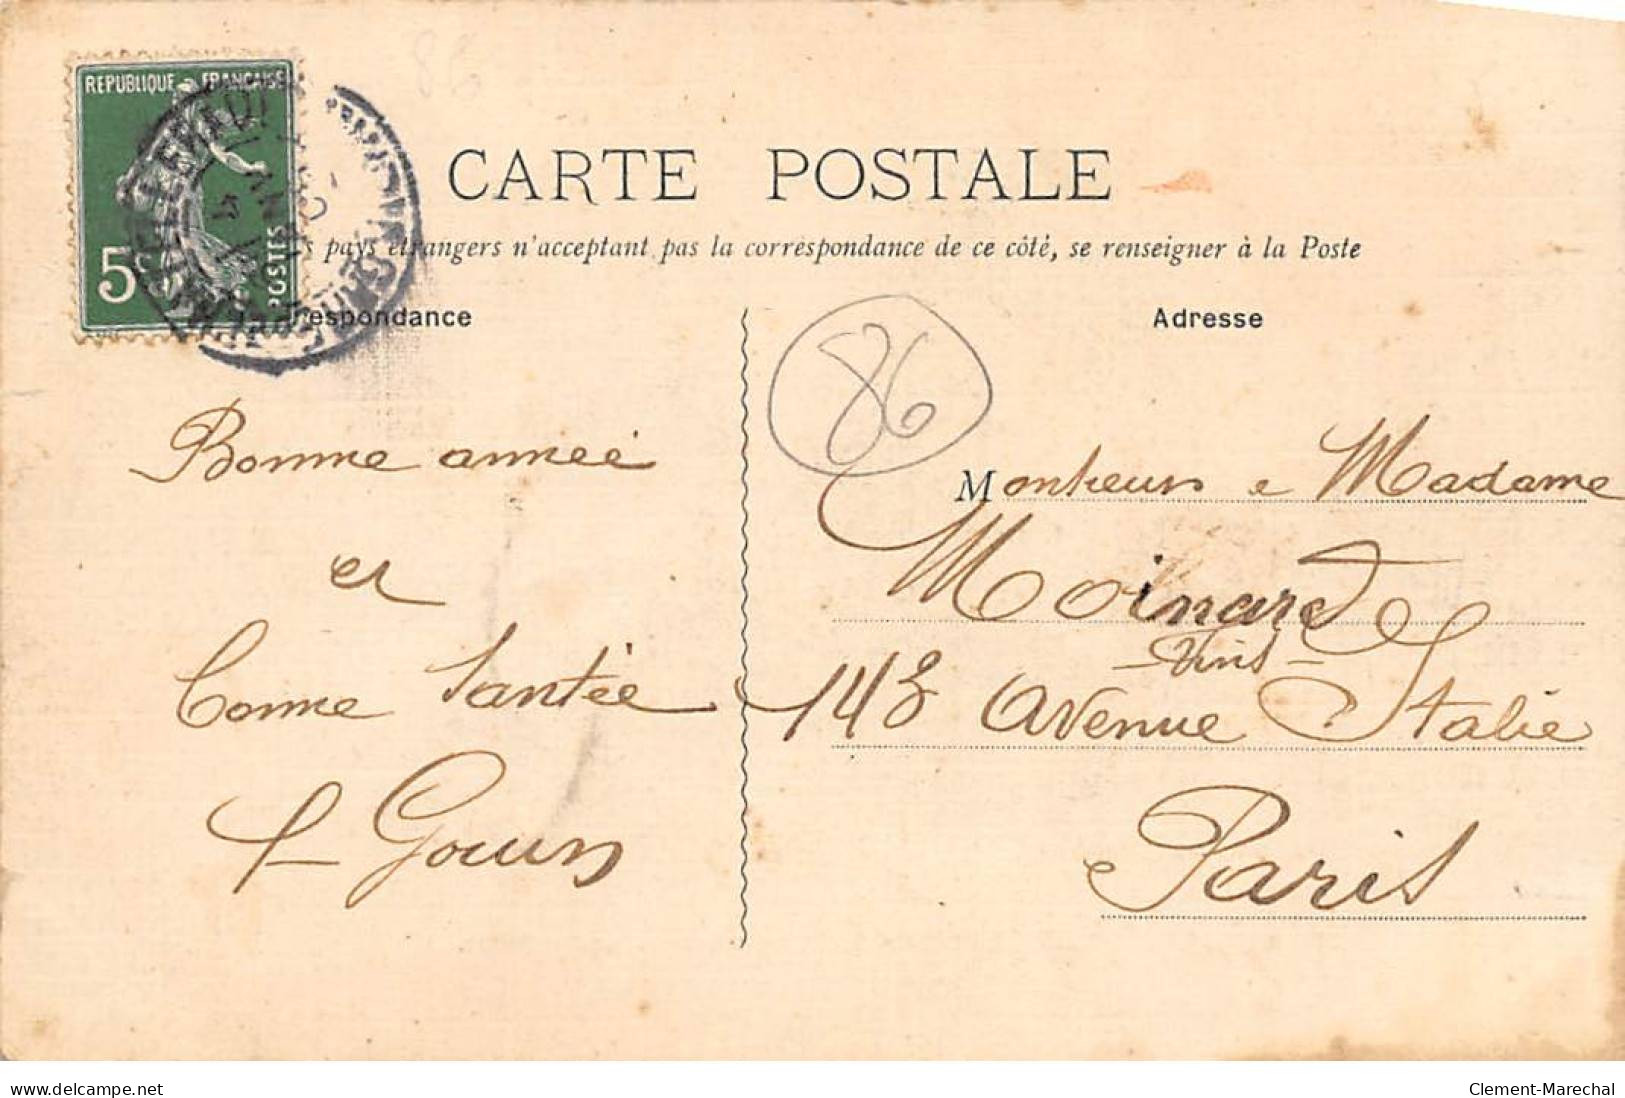 86
REPUBLIQUE FRANÇAISE
5c
POSTES
CARTE POSTALE
pays étrangers n'acceptant pas la correspondance de ce côté, se renseigner à la Poste
respondance
Adresse
86
Bonne année
et
bonne santée
Gouin
Monsieur e Madame
Moinard
- Vins -
143 Avenue Italie
Paris
www.delcampe.net
Clement-Marechal